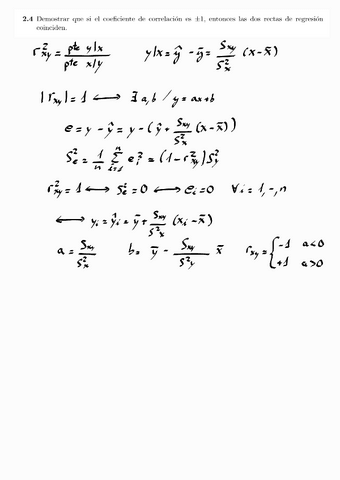 2.4 Demostrar que si el coeficiente de correlación es ±1, entonces las dos rectas de regresión
coinciden.
r²xy = pte y|x / pte x/y    y|x = ŷ - ȳ = Sxy/S²x (x - x̄)
|rxy| = 1 ⟷ ∃ a,b / y = ax + b
e = y - ŷ = y - (ȳ + Sxy/S²x (x - x̄))
S²e = 1/n Σⁿᵢ₌₁ e²i = (1 - r²xy) S²y
r²xy = 1 ⟷ S²e = 0 ⟷ ei = 0 ∀ i = 1, -, n
⟷ yi = ŷi = ȳ + Sxy/S²x (xi - x̄)
a = Sxy/S²x    b = ȳ - Sxy/S²y x̄    rxy = { -1 a<0
+1 a>0